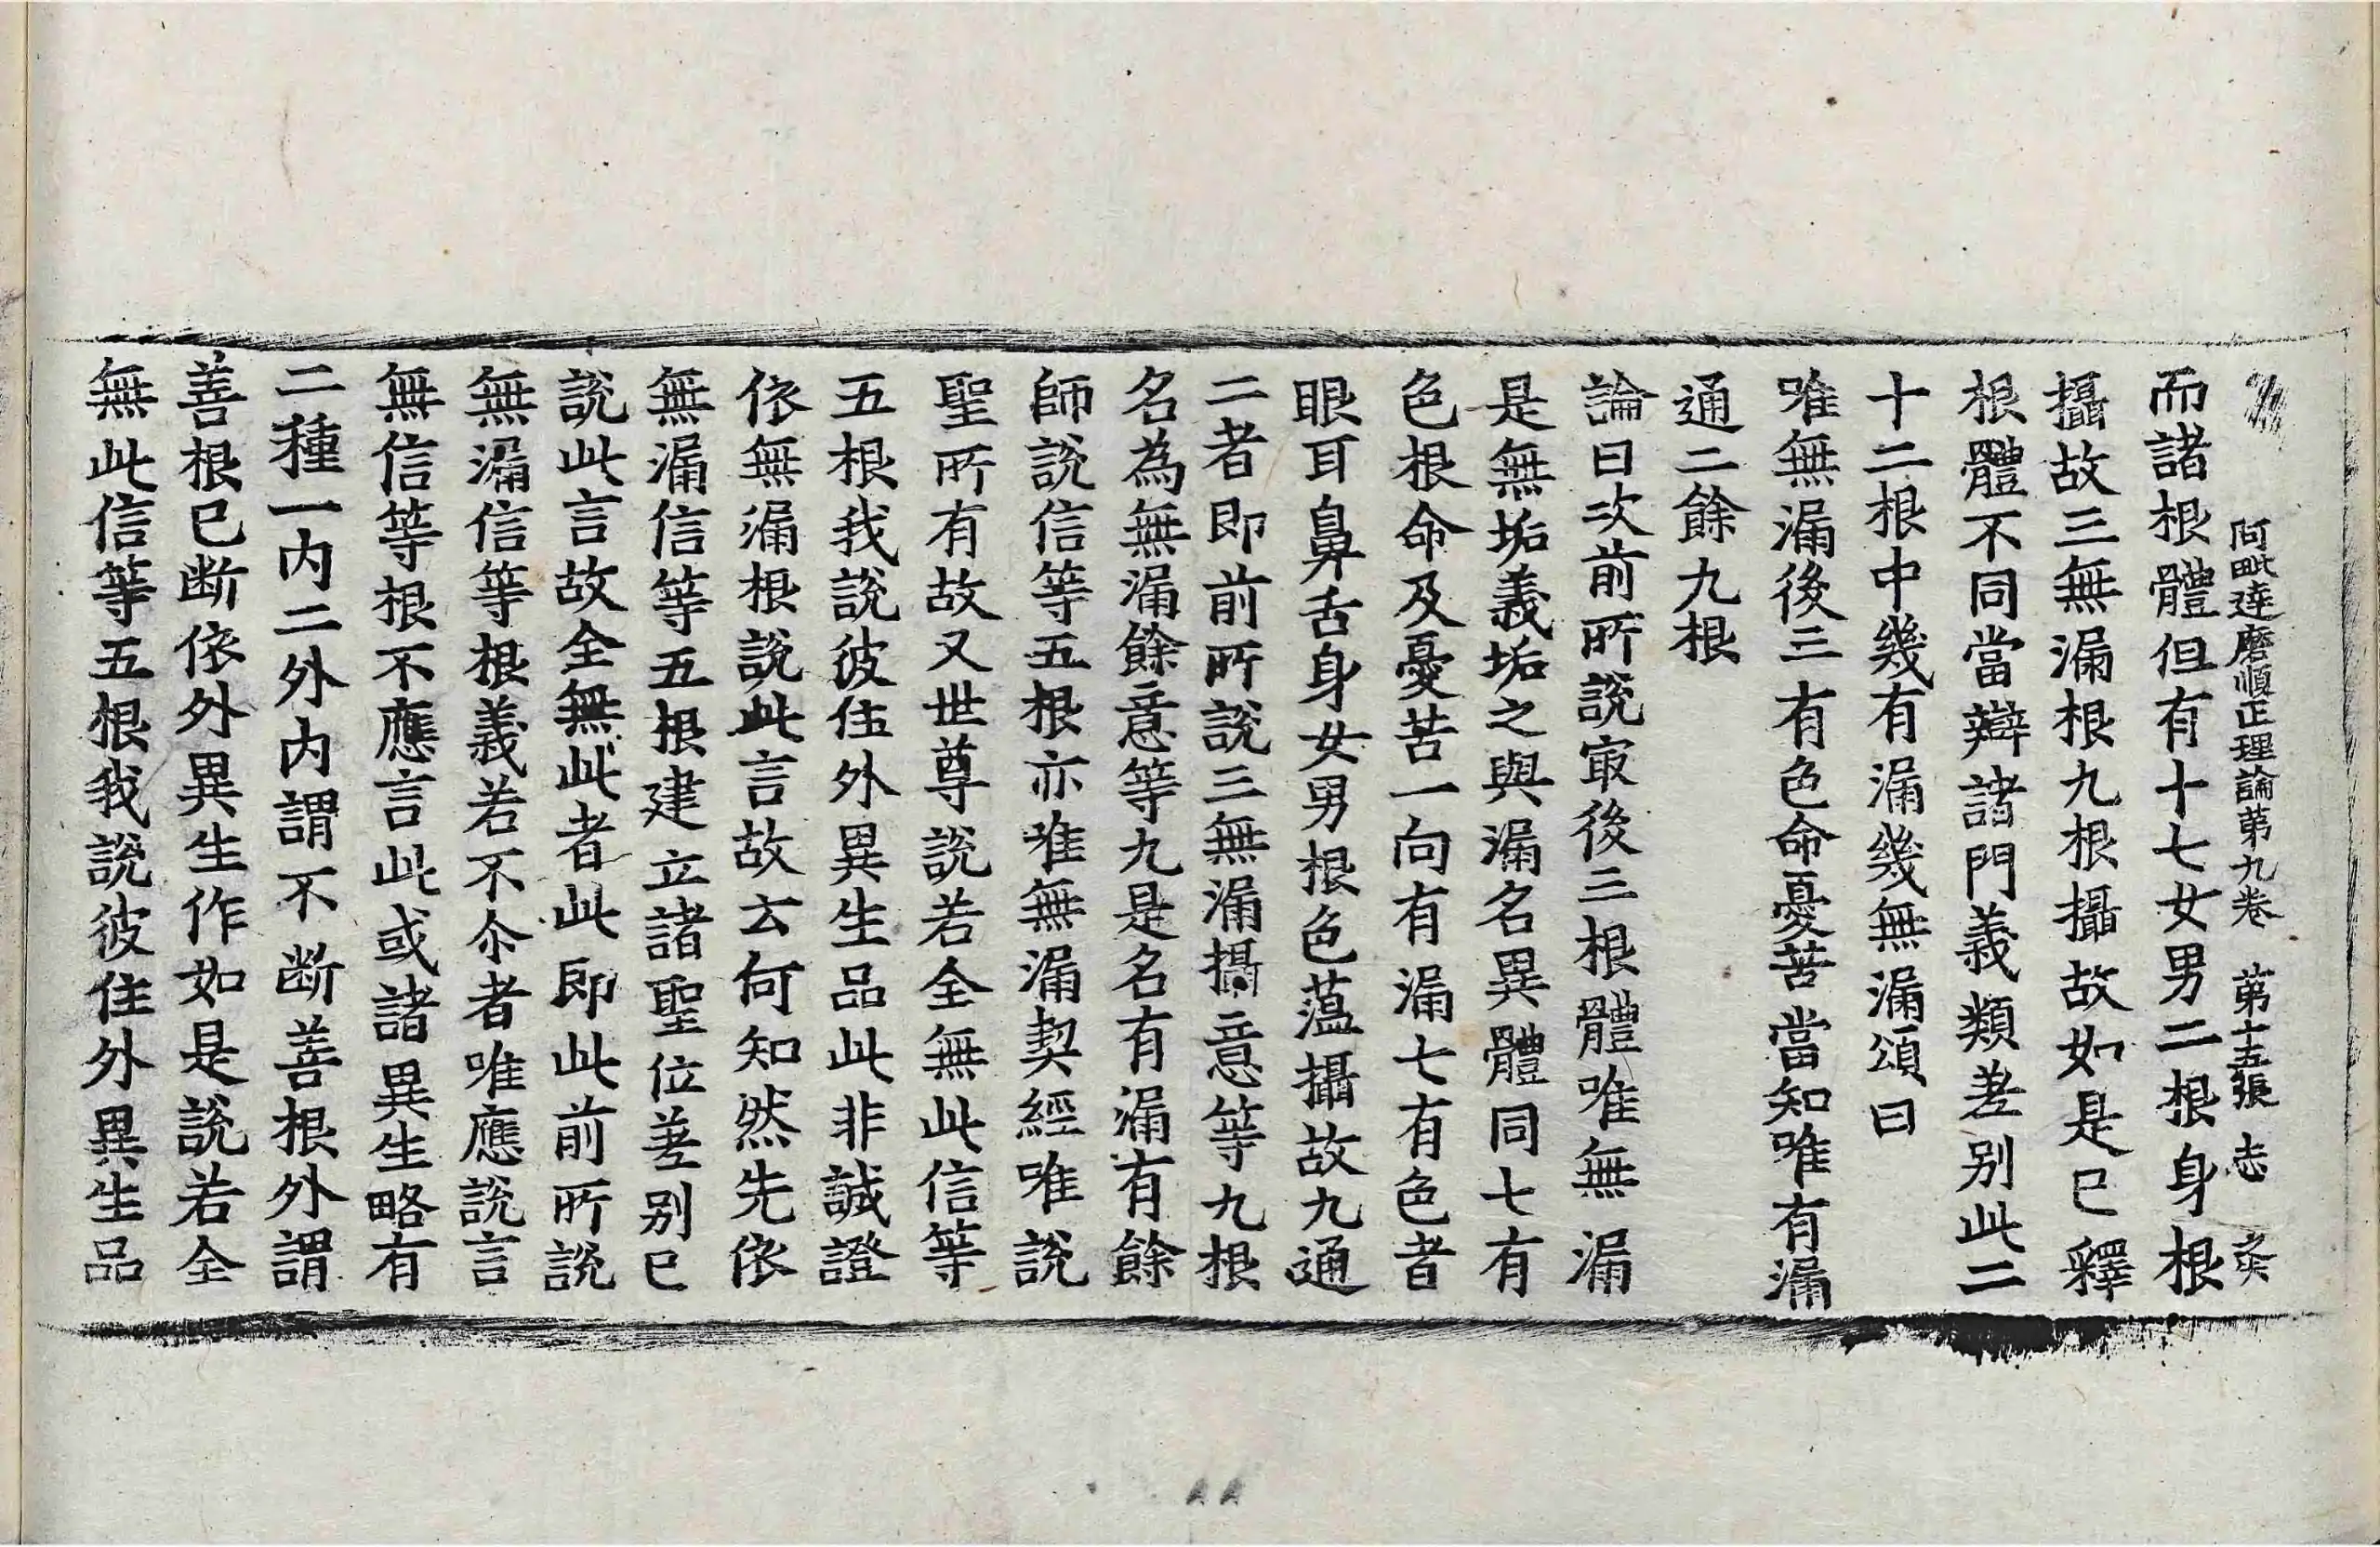 阿毗達磨順正理論第九卷 第十五張 志
而諸根體但有十七女男二根身根
攝故三無漏根九根攝故如是已釋
根體不同當辯諸門義類差别此二
十二根中幾有漏幾無漏頌曰
唯無漏後三有色命憂苦當知唯有漏
通二餘九根
論曰次前所說㝡後三根體唯無漏
是無垢義垢之與漏名異體同七有
色根命及憂苦一向有漏七有色者
眼耳鼻舌身女男根色蘊攝故九通
二者即前所說三無漏攝意等九根
名為無漏餘意等九是名有漏有餘
師說信等五根亦唯無漏契經唯說
聖所有故又世尊說若全無此信等
五根我說彼住外異生品此非誠證
依無漏根說此言故云何知然先依
無漏信等五根建立諸聖位差别已
說此言故全無此者此即此前所說
無漏信等根義若不尒者唯應說言
無信等根不應言此或諸異生略有
二種一内二外内謂不断善根外謂
善根已断依外異生作如是說若全
無此信等五根我說彼住外異生品